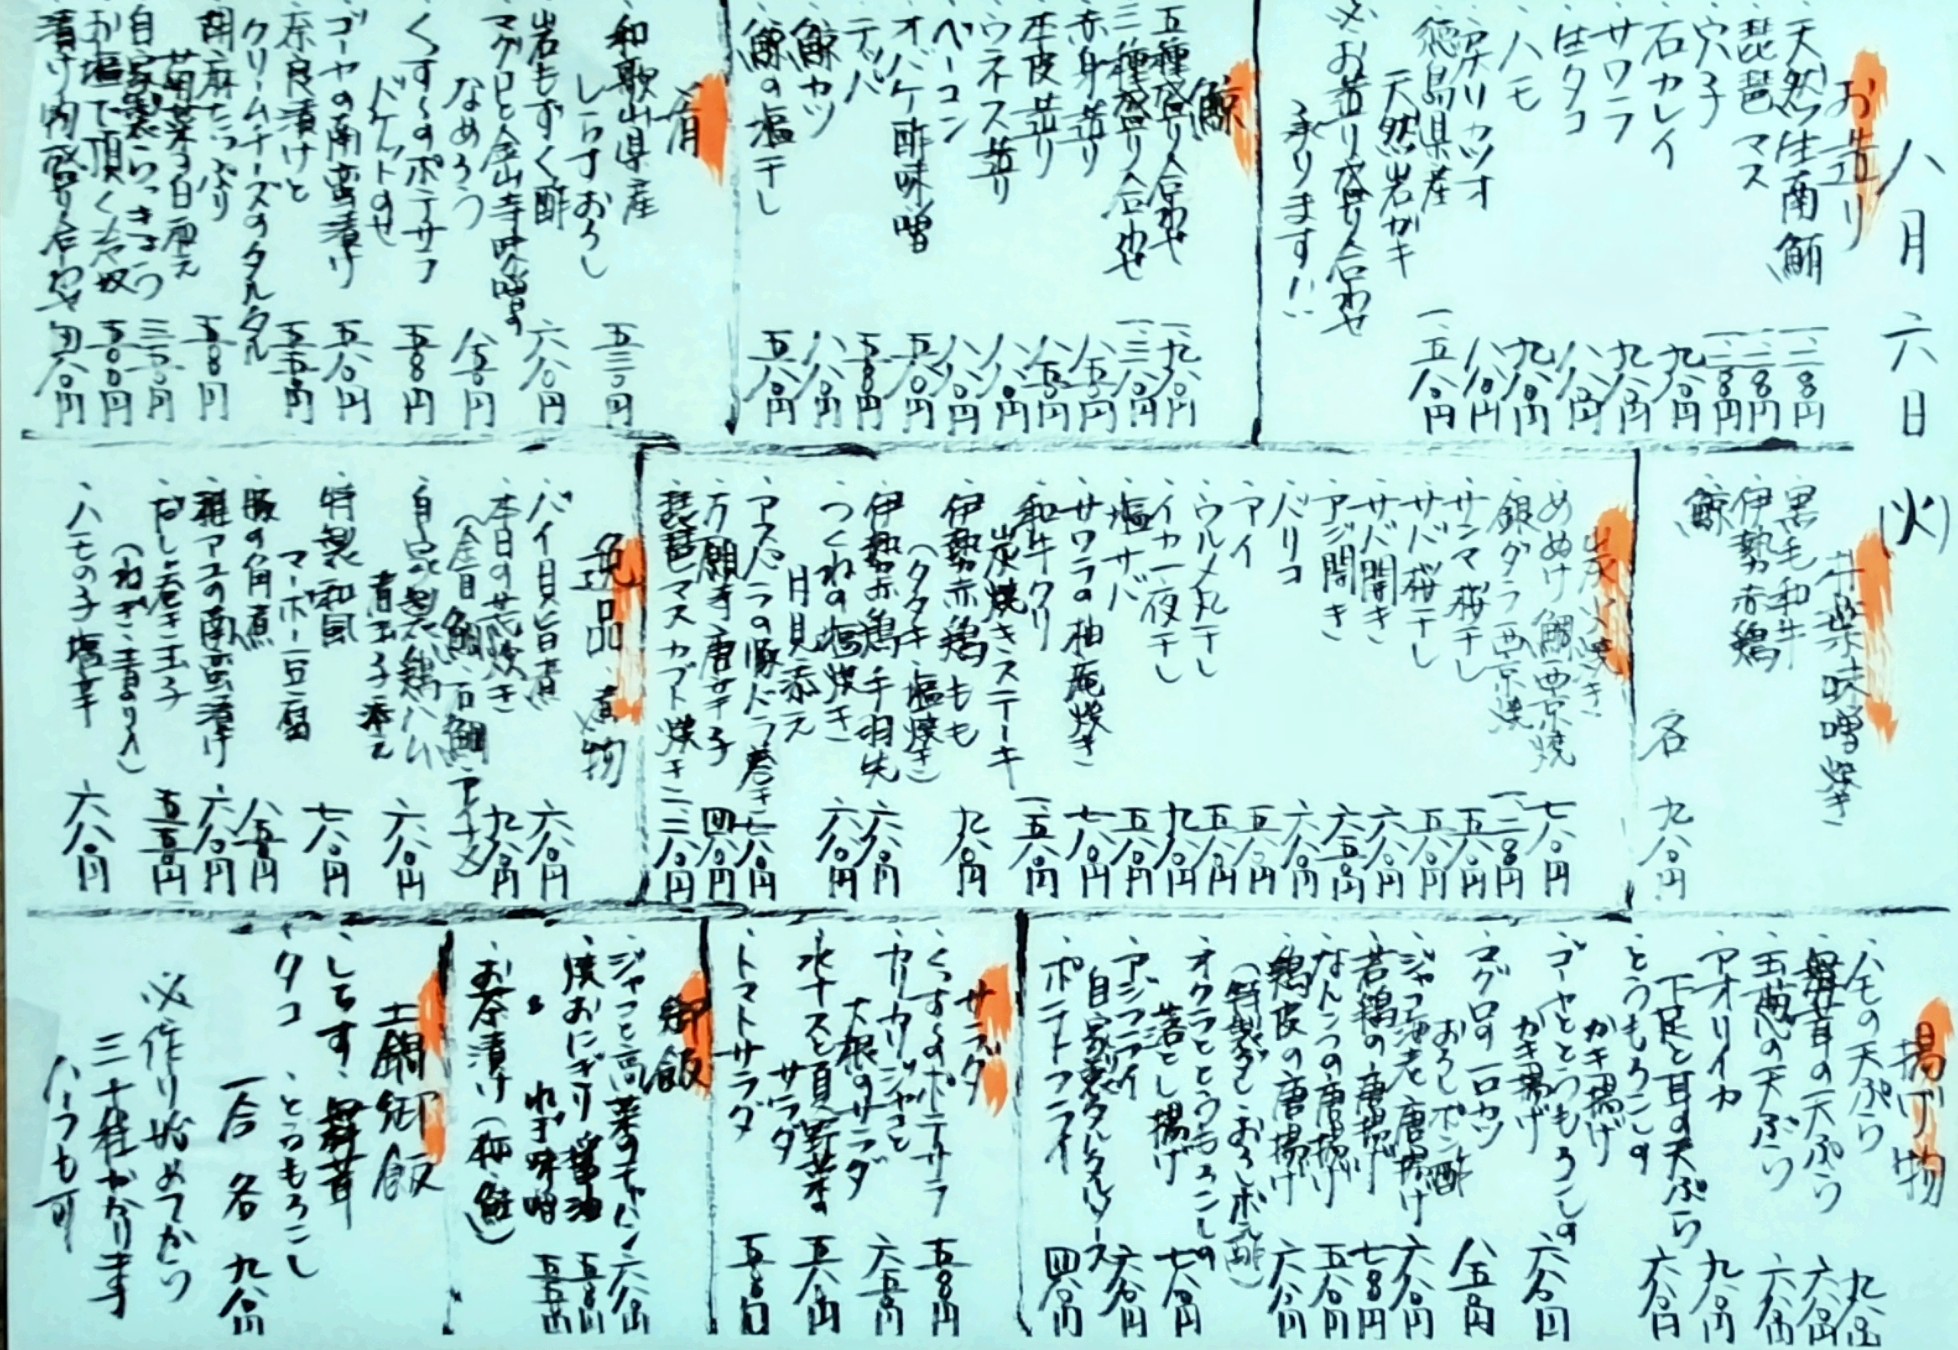 八月六日(火)
お造り
天然生南鮪 一、二〇〇円
琵琶マス 一、二〇〇円
穴子 一、二〇〇円
石カレイ 九八〇円
サワラ 九八〇円
生タコ 八八〇円
ハモ 九八〇円
戻りカツオ 八八〇円
徳島県産
天然岩ガキ 一、五八〇円
※お造り盛り合わせ
承ります!!
鯨
五種盛り合わせ 一、九八〇円
三種盛り合わせ 一、三八〇円
赤身造り 八五〇円
本皮造り 八五〇円
ウネス造り 八八〇円
ベーコン 八八〇円
オバケ酢味噌 五八〇円
テッパ 五八〇円
鯨カツ 八八〇円
鯨の塩干し 五八〇円
和歌山県産
しらすおろし 五三〇円
岩もずく酢 六八〇円
マグロと金山寺味噌の
なめろう 八五〇円
くずしのポテサラ
ドケットのせ 五八〇円
ゴーヤの南蛮漬け 五八〇円
奈良漬けと
クリームチーズのタルタル 五五〇円
胡麻たっぷり
菊菜の白和え 五八〇円
自家製らっきょう 三五〇円
お塩で頂く冷奴 五〇〇円
漬け物盛り合わせ 四八〇円
味噌焼き
黒毛和牛
伊勢赤鶏
鯨
各 九八〇円
炭火焼き
めぬけ鯛西京焼 七八〇円
銀ダラ西京焼 一、二〇〇円
サンマ桜干し 五八〇円
サバ桜干し 五八〇円
サバ開き 六八〇円
アジ開き 六五〇円
バリコ 六八〇円
アイ 五八〇円
ウルメ丸干し 五八〇円
イカ一夜干し 九八〇円
塩サバ 五八〇円
サワラの柚庵焼き 七八〇円
和牛クリ
炭焼きステーキ 一、五八〇円
伊勢赤鶏もも
(タタキ・塩焼き) 九八〇円
伊勢赤鶏手羽先 六八〇円
つくねの塩焼き
月見添え 六八〇円
アスパラの豚バラ巻き 七八〇円
万願寺唐辛子 四八〇円
琵琶マスカブト焼き 二、二八〇円
一品・煮物
バイ貝旨煮 六八〇円
本日の荒炊き 九八〇円
(金目鯛・石鯛・アイナメ)
自家製鶏ハム
煮玉子添え 六八〇円
特製和風
マーボー豆腐 七八〇円
豚の角煮 八五〇円
稚アユの南蛮漬け 六八〇円
だし巻き玉子 五五〇円
(ねぎ・青のり入)
ハモの子塩辛 六八〇円
揚げ物
ハモの天ぷら 九八〇円
舞茸の天ぷら 六八〇円
玉葱の天ぷら 六八〇円
アオリイカ
下足と耳の天ぷら 九八〇円
とうもろこしの
かき揚げ 六八〇円
ゴーヤととうもろこしの
かき揚げ 六八〇円
マグロの一口カツ
おろしポン酢 八五〇円
ジャコ海老唐揚げ 六八〇円
若鶏の唐揚げ 七八〇円
なんこつの唐揚げ 五八〇円
鶏皮の唐揚げ 六八〇円
(特製だし・おろしポン酢)
オクラととうもろこしの
落とし揚げ 七八〇円
アジフライ
自家製タルタルソース 六八〇円
ポテトフライ 四八〇円
サラダ
くずしポテサラ 五八〇円
カリカリジャコと
大根のサラダ 六五〇円
水ナスと夏野菜の
サラダ 五八〇円
トマトサラダ 五八〇円
御飯
ジャコと高菜のチャーハン 六八〇円
焼おにぎり 醤油 五八〇円
ねぎ味噌
お茶漬け(梅・鮭) 五五〇円
土鍋御飯
しらす・舞茸
タコ・とうもろこし
一合 各 九八〇円
※作り始めてから
三十程かかります
ハーフも可